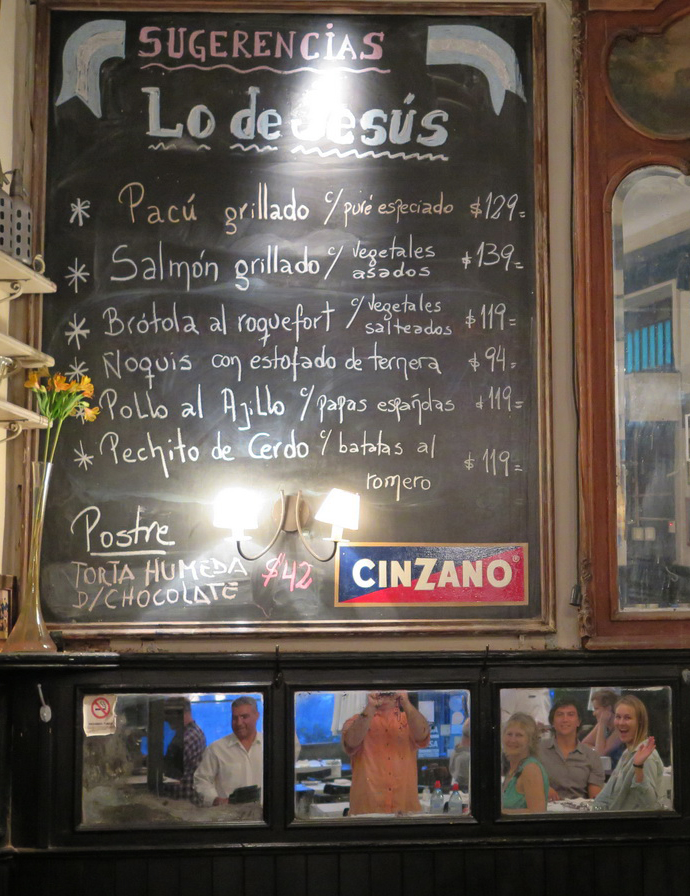 SUGERENCIAS
Lo de Jesús
* Pacú grillado c/ puré especiado $129=
* Salmón grillado c/ vegetales asados $139=
* Brótola al roquefort c/ vegetales salteados $119=
* Ñoquis con estofado de ternera $94=
* Pollo al Ajillo c/ papas españolas $119=
* Pechito de Cerdo c/ batatas al $119=
romero
Postre
TORTA HUMEDA $42
D/CHOCOLATE
CINZANO®